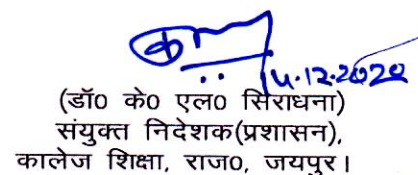 14.12.2020
(डॉ० के० एल० सिराधना)
संयुक्त निदेशक(प्रशासन),
कालेज शिक्षा, राज०, जयपुर।